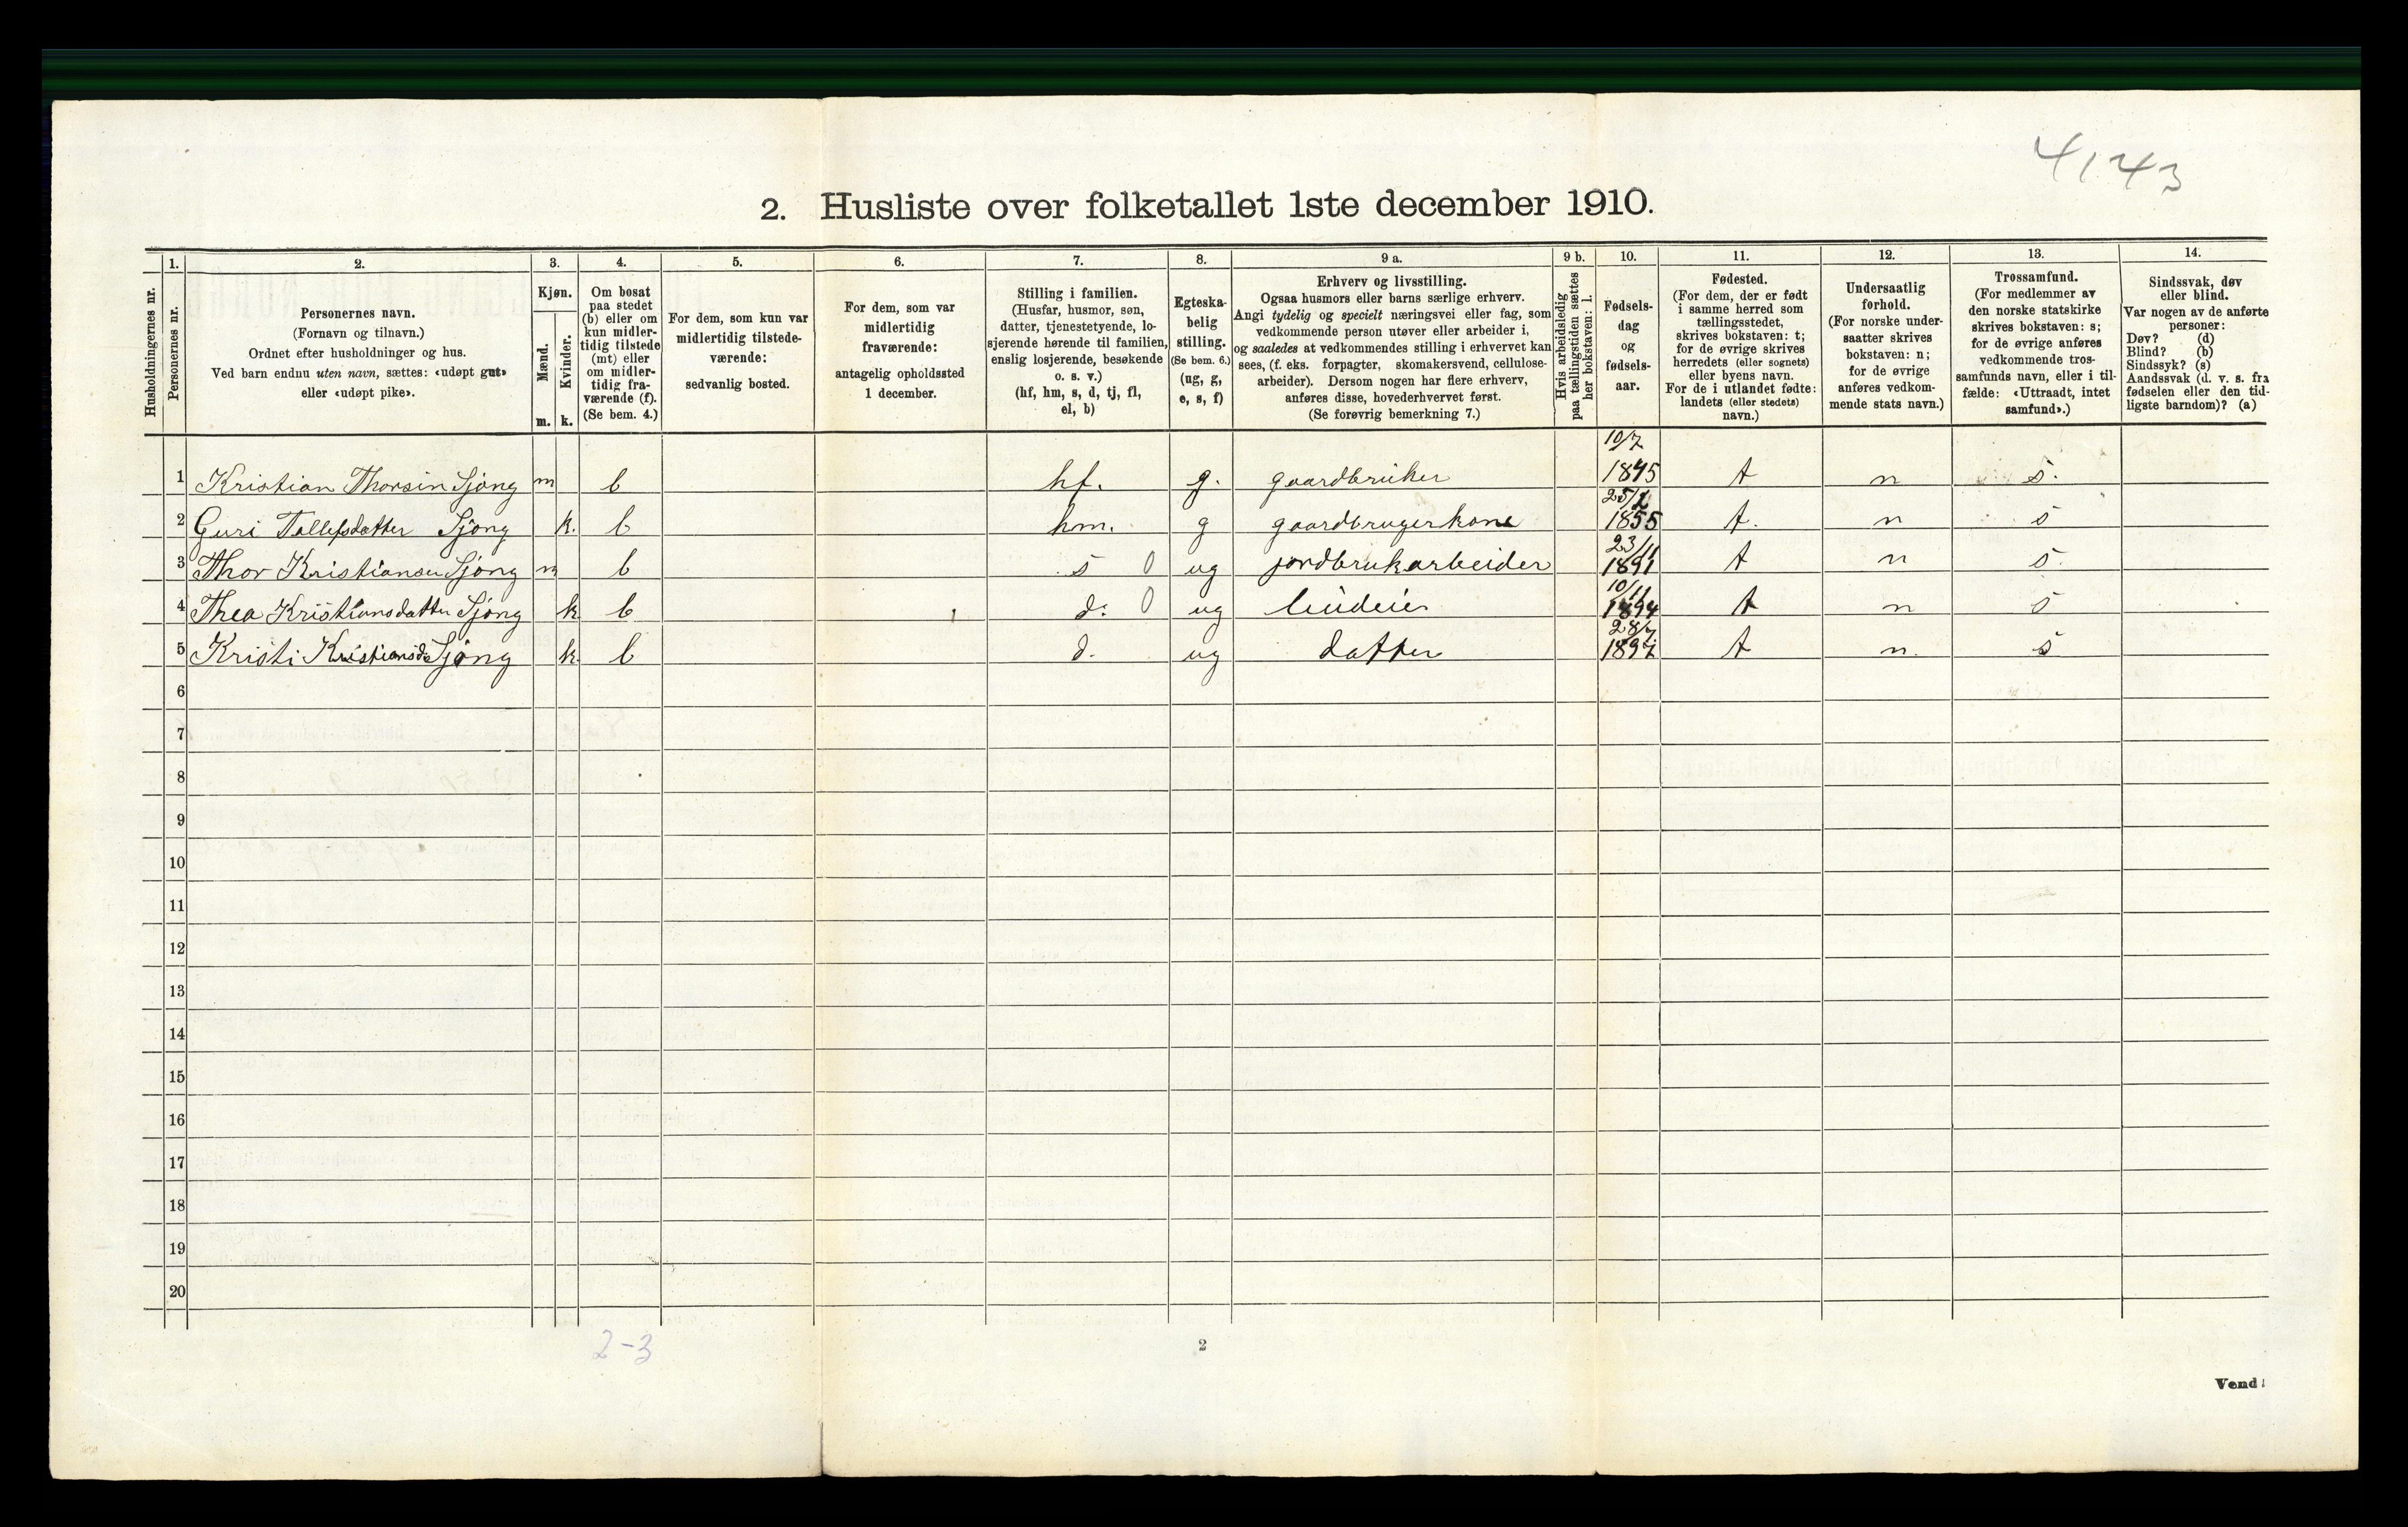 4143
2. Husliste over folketallet 1ste december 1910.
Husholdningernes nr.
1.
Personernes nr.
2.
Personernes navn.
(Fornavn og tilnavn.)
Ordnet efter husholdninger og hus.
Ved barn endnu uten navn, sættes: «udøpt gut»
eller «udøpt pike».
3.
Kjøn.
Mænd.
Kvinder.
m.
k.
4.
Om bosat
paa stedet
(b) eller om
kun midler-
tidig tilstede
(mt) eller
om midler-
tidig fra-
værende (f).
(Se bem. 4.)
5.
For dem, som kun var
midlertidig tilstede-
værende:
sedvanlig bosted.
6.
For dem, som var
midlertidig
fraværende:
antagelig opholdssted
1 december.
7.
Stilling i familien.
(Husfar, husmor, søn,
datter, tjenestetyende, lo-
sjerende hørende til familien,
enslig losjerende, besøkende
o. s. v.)
(hf, hm, s, d, tj, fl,
el, b)
8.
Egteska-
belig
stilling.
(Se bem. 6.)
(ug, g,
e, s, f)
9 a.
Erhverv og livsstilling.
Ogsaa husmors eller barns særlige erhverv.
Angi tydelig og specielt næringsvei eller fag, som
vedkommende person utøver eller arbeider i,
og saaledes at vedkommendes stilling i erhvervet kan
sees, (f. eks. forpagter, skomakersvend, cellulose-
arbeider). Dersom nogen har flere erhverv,
anføres disse, hovederhvervet først.
(Se forøvrig bemerkning 7.)
9 b.
Hvis arbeidsledig
paa tællingstiden sættes
her bokstaven: l.
10.
Fødsels-
dag
og
fødsels-
aar.
11.
Fødested.
(For dem, der er født
i samme herred som
tællingsstedet,
skrives bokstaven: t;
for de øvrige skrives
herredets (eller sognets)
eller byens navn.
For de i utlandet fødte:
landets (eller stedets)
navn.)
12.
Undersaatlig
forhold.
(For norske under-
saatter skrives
bokstaven: n;
for de øvrige
anføres vedkom-
mende stats navn.)
13.
Trossamfund.
(For medlemmer av
den norske statskirke
skrives bokstaven: s;
for de øvrige anføres
vedkommende tros-
samfunds navn, eller i til-
fælde: «Uttraadt, intet
samfund».)
14.
Sindssvak, døv
eller blind.
Var nogen av de anførte
personer:
Døv? (d)
Blind? (b)
Sindssyk? (s)
Aandssvak (d. v. s. fra
fødselen eller den tid-
ligste barndom)? (a)
1 Kristian Thorsin Sjong m b hf. g. gaardbruker 10/7 1845 t n s.
2 Guri Tollefsdatter Sjong k. b hm. g gaardbrugerkone 25/2 1855 t. n s
3 Thor Kristiansen Sjong m b s 0 ug jordbrukarbeider 23/11 1891 t n s.
4 Thea Kristiansdatter Sjong k b d. 0 ug 10/11 1894 t n s
5 Kristi Kristiansd. Sjong k. b d. ug datter 28/7 1897 t n. s
6
7
8
9
10
11
12
13
14
15
16
17
18
19
20
2-3
2
Vend!